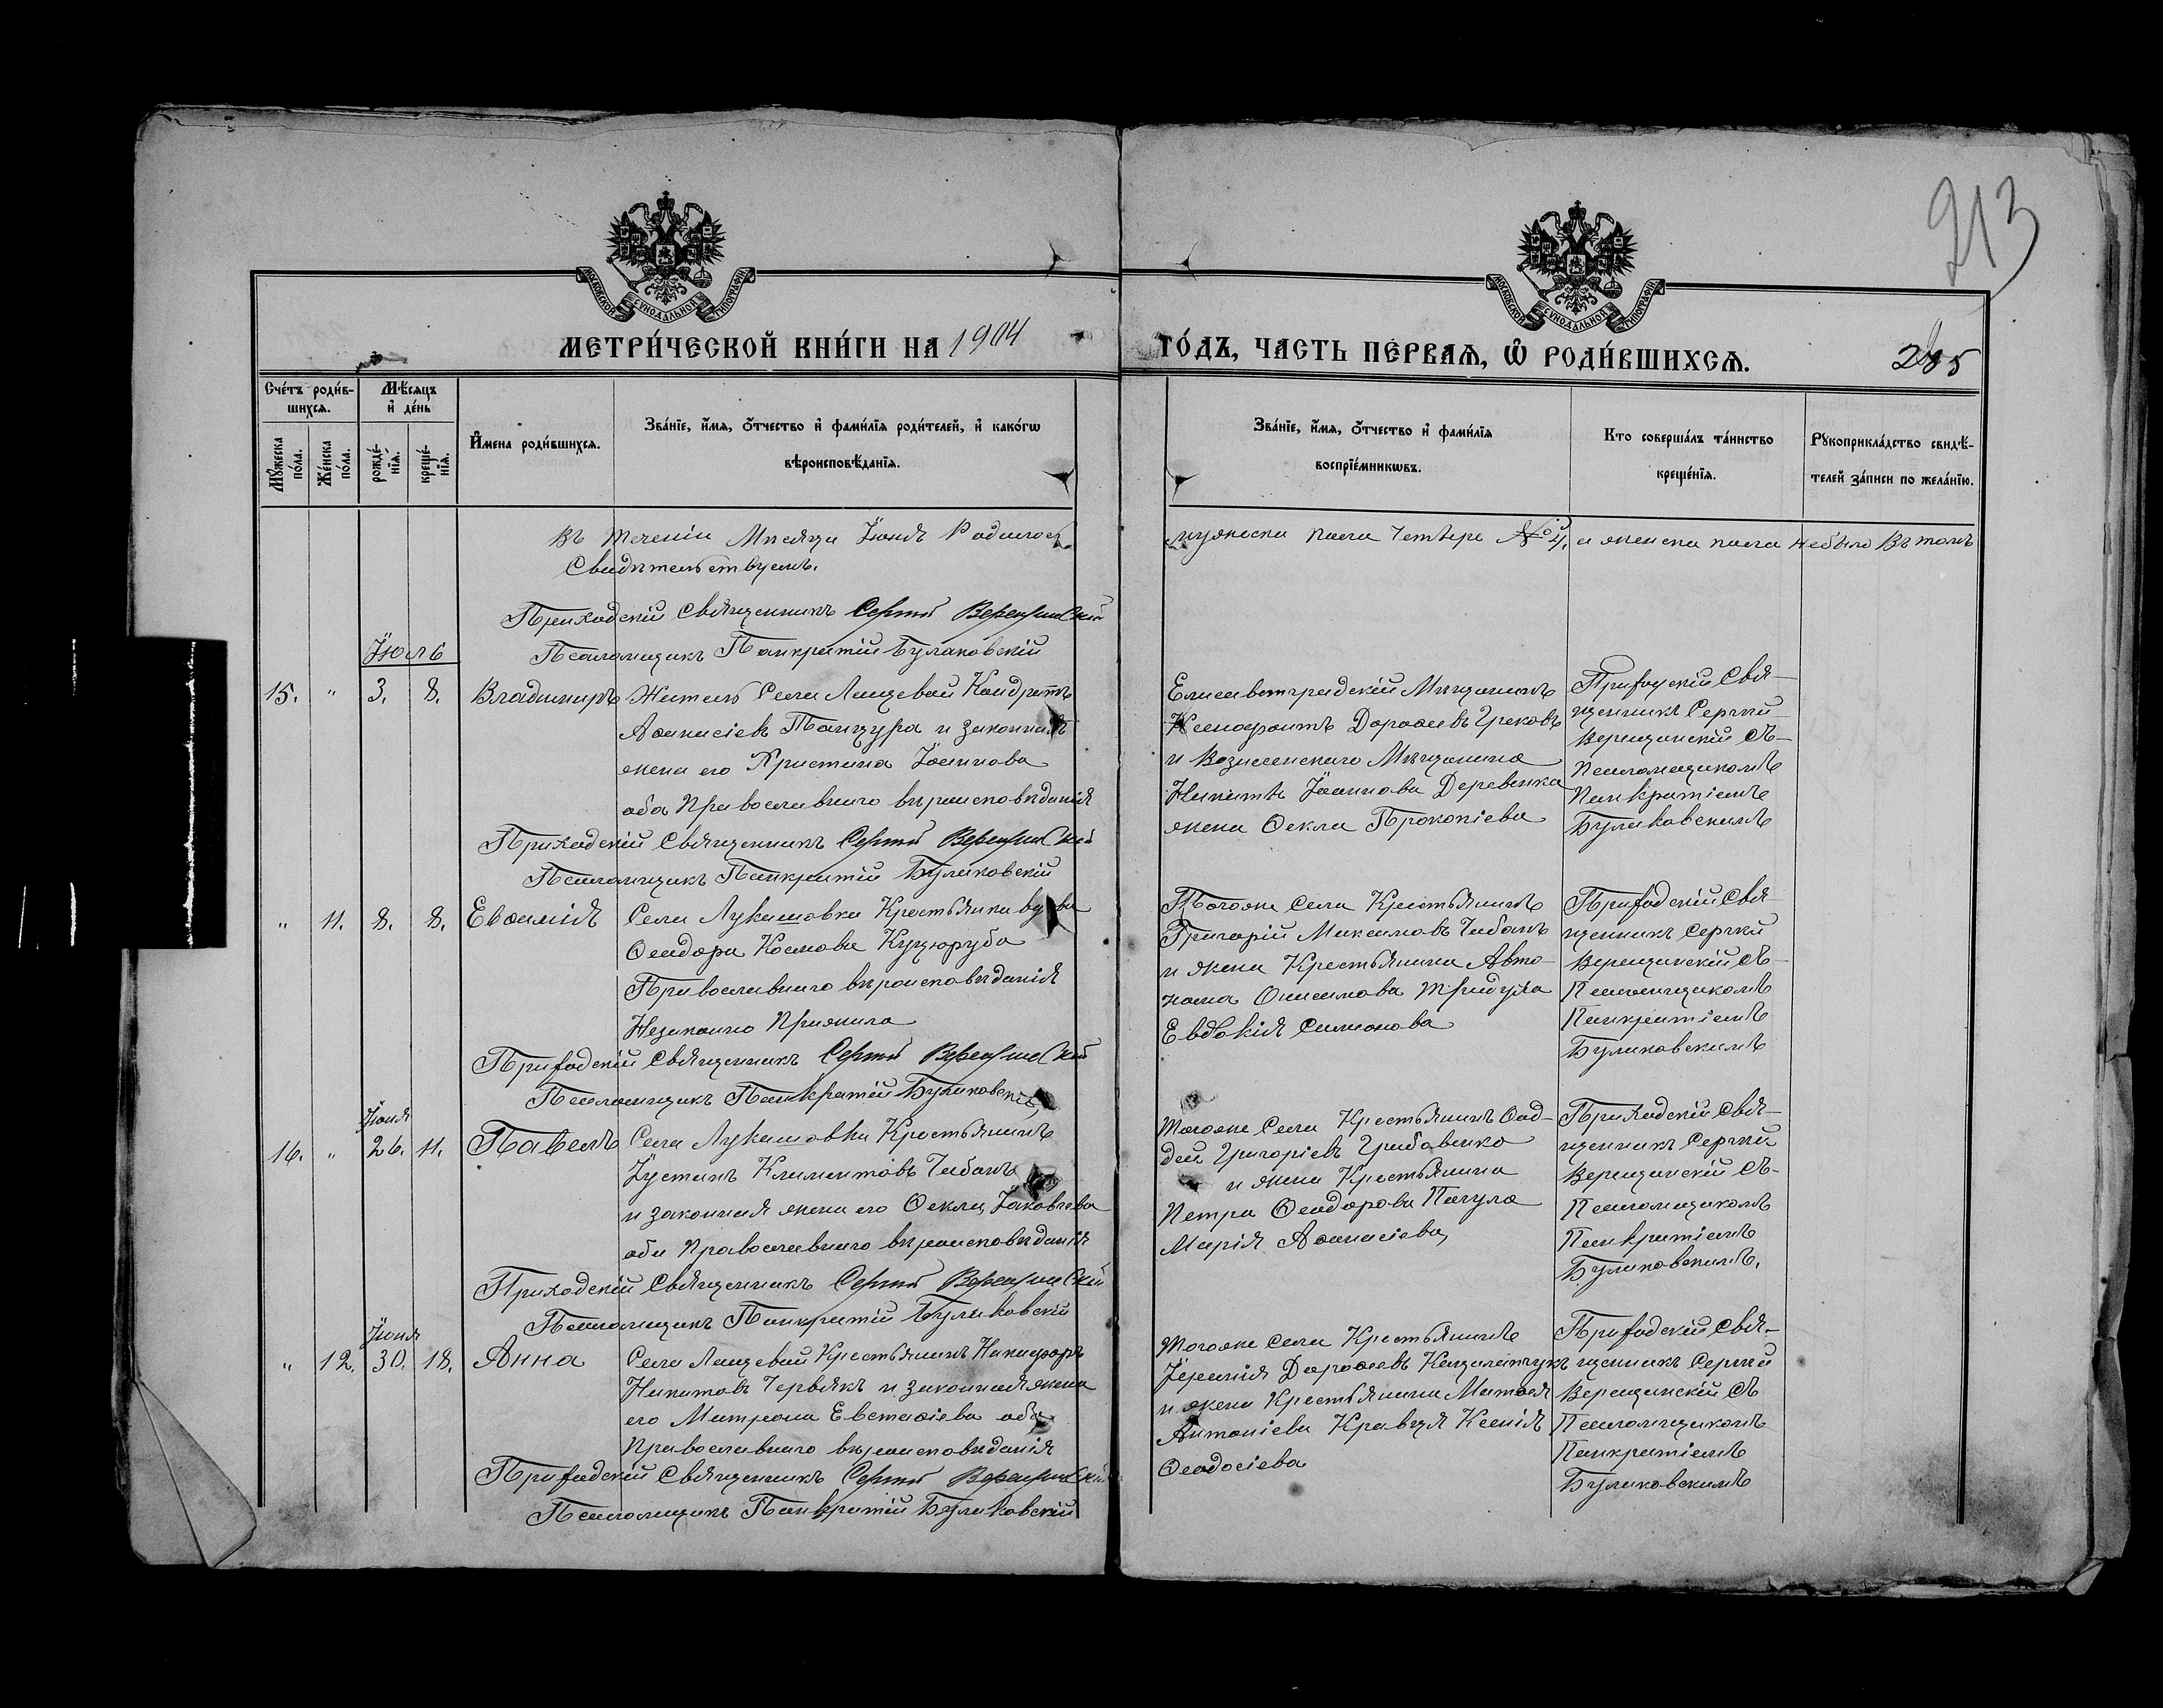 213
МОСКОВСКОЙ СУНОДАЛЬНОЙ ТИПОГРАФІИ
МОСКОВСКОЙ СУНОДАЛЬНОЙ ТИПОГРАФІИ
МЕТРИ́ЧЕСКОЙ КНИ́ГИ НА 1904
ГО́ДЪ, ЧАСТЬ ПЕ́РВАѦ, Ѡ҆ РОДИ́ВШИХСѦ.
285
Сче́тъ роди́в-
шихсѧ.
Мѣ́сѧцъ
и҆ де́нь
Мꙋ́жеска по́ла.
Же́нска по́ла.
рожде́-нїѧ.
креще́-нїѧ.
И҆мена роди́вшихсѧ.
Зва́нїе, и҆́мѧ, ѻ҆́тчество и҆ фами́лїѧ роди́телей, и҆ како́гѡ
вѣроисповѣ́данїѧ.
Зва́нїе, и҆́мѧ, ѻ҆́тчество и҆ фами́лїѧ
воспрїе́мникѡвъ.
Кто соверша́лъ та́инство
креще́нїѧ.
Рꙋкоприкла́дство свидѣ́-
телей за́писи по жела́нїю.
Въ теченіи Мѣсяца Іюня Родилось
мужеска пола четыре № 4, а женска пола небыло Въ томъ
Свидѣтельствуемъ.
Приходскій Священникъ Сергій Верещинскій
Псаломщикъ Панкратій Булаковскій
Іюль
15. " 3. 8. Владимиръ
Житель Села Лащевой Кондратъ
Аѳанасіевъ Панцура и законная
жена его Христина Іоаннова
оба Православнаго вѣроисповѣданія
Елисаветградскій Мѣщанинъ
Ксенофонтъ Дороѳеевъ Грековъ
и Вознесенскаго Мѣщанина
Никиты Іоаннова Деревенка
жена Ѳекла Прокопіева
Приходскій Свя-
щенникъ Сергій
Верещинскій съ
Псаломщикомъ
Панкратіемъ
Булаковскимъ
Приходскій Священникъ Сергій Верещинскій
Псаломщикъ Панкратій Булаковскій
" 11. 8. 8. Евѳимія
Села Лукашовки Крестьянка вдова
Ѳеодора Космова Куцюруба
Православнаго вѣроисповѣданія
Незаконно Прижила
Тогоже Села Крестьянинъ
Григорій Максимовъ Чабанъ
и жена Крестьянина Авто-
нома Онисимова
Евдокія Симонова
Приходскій Свя-
щенникъ Сергій
Верещинскій съ
Псаломщикомъ
Панкратіемъ
Булаковскимъ
Приходскій Священникъ Сергій Верещинскій
Псаломщикъ Панкратій Булаковскій
Іюня
16. " 26. 11. Павелъ
Села Лукашовки Крестьянинъ
Іустинъ Климентовъ Чабанъ
и законная жена его Ѳекла Іаковлева
оба Православнаго вѣроисповѣданія
Тогоже Села Крестьянинъ Ѳад-
дей Григоріевъ Грибовенко
и жена Крестьянина
Петра Ѳеодорова Пагула
Марія Аѳанасіева
Приходскій Свя-
щенникъ Сергій
Верещинскій съ
Псаломщикомъ
Панкратіемъ
Булаковскимъ.
Приходскій Священникъ Сергій Верещинскій
Псаломщикъ Панкратій Булаковскій
Іюня
" 12. 30. 18. Анна
Села Лащевой Крестьянинъ Никифоръ
Никитовъ Червякъ и законная жена
его Матрона Евстаѳіева оба
Православнаго вѣроисповѣданія
Тогоже Села Крестьянинъ
Іеремія Дороѳеевъ
и жена Крестьянина Матѳея
Антоніева Кравця Ксенія
Ѳеодосіева
Приходскій Свя-
щенникъ Сергій
Верещинскій съ
Псаломщикомъ
Панкратіемъ
Булаковскимъ
Приходскій Священникъ Сергій Верещинскій
Псаломщикъ Панкратій Булаковскій